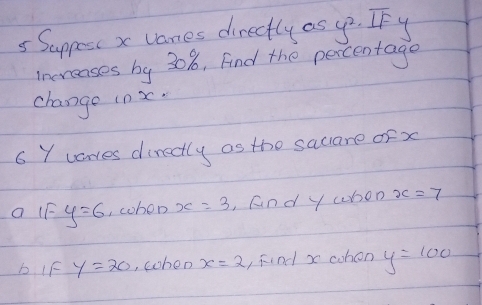 5 Suppose x varies directly as y². IF y
increases by 30%, Find the percentage
change in x.
6 Y varies directly as the square of x
a IF y=6, when x = 3, Find y when x = 7
b IF y = 20, when x = 2, Find x when y = 100